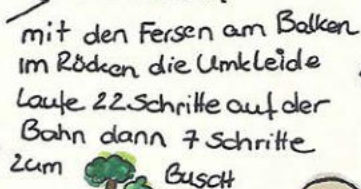 mit den Fersen am Balken
im Rücken die Umkleide
Laufe 22 Schritte auf der
Bahn dann 7 Schritte
zum Busch